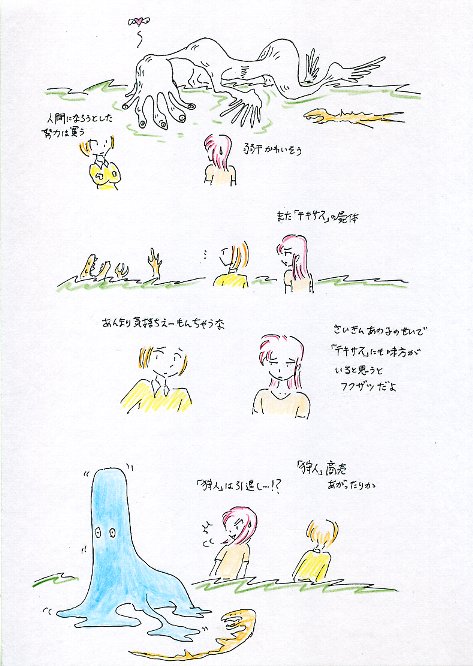 人間になろうとした
努力は買う
若干かわいそう
また「テキサス」の死体
あんまり気持ちえーもんちゃうな
さいきんあの子のせいで
「テキサス」にも味方が
いると思うと
フクザツだよ
「狩人」は引退し…!?
「狩人」商売
あがったりか